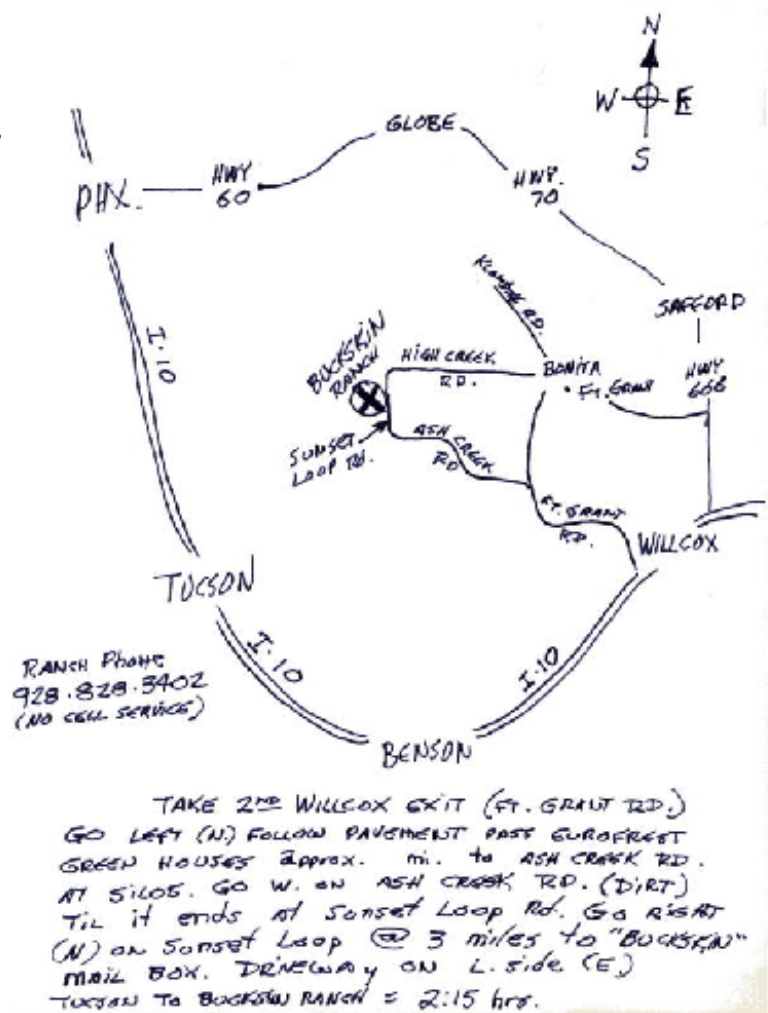 N
W E
S
GLOBE
PHX.
HWY
60
HWY.
70
KLONDYKE RD.
SAFFORD
I.10
BUCKSKIN
RANCH
HIGH CREEK
RD.
BONITA
FT. GRANT
HWY
666
SUNSET
LOOP Rd.
ASH CREEK
RD
FT. GRANT
RD.
WILLCOX
TUCSON
I.10
I.10
RANCH PHONE
928.828.3402
(NO CELL SERVICE)
BENSON
TAKE 2ND WILLCOX EXIT (FT. GRANT RD.)
GO LEFT (N.) FOLLOW PAVEMENT PAST EUROFREST
GREEN HOUSES approx. mi. to ASH CREEK RD.
AT SILOS. GO W. ON ASH CREEK RD. (DIRT)
TIL it ends at Sunset Loop Rd. GO RIGHT
(N) ON Sunset Loop @ 3 miles to "BUCKSKIN"
MAIL BOX. DRIVEWAY ON L. side (E.)
TUCSON TO BUCKSKIN RANCH = 2:15 hrs.